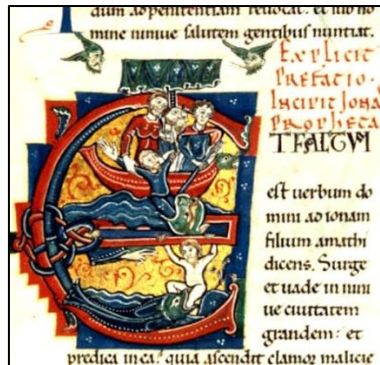 dum ad penitentiam reuocat. et sub no
mine niniue salutem gentibus nuntiat.
EXPLICIT
PREFATIO.
INCIPIT JONA
PROPHETA
ET FACTVM
est uerbum do
mini ad ionam
filium amathi
dicens. Surge
et uade in nini
ue ciuitatem
grandem: et
predica in ea. quia ascendit clamor malicie